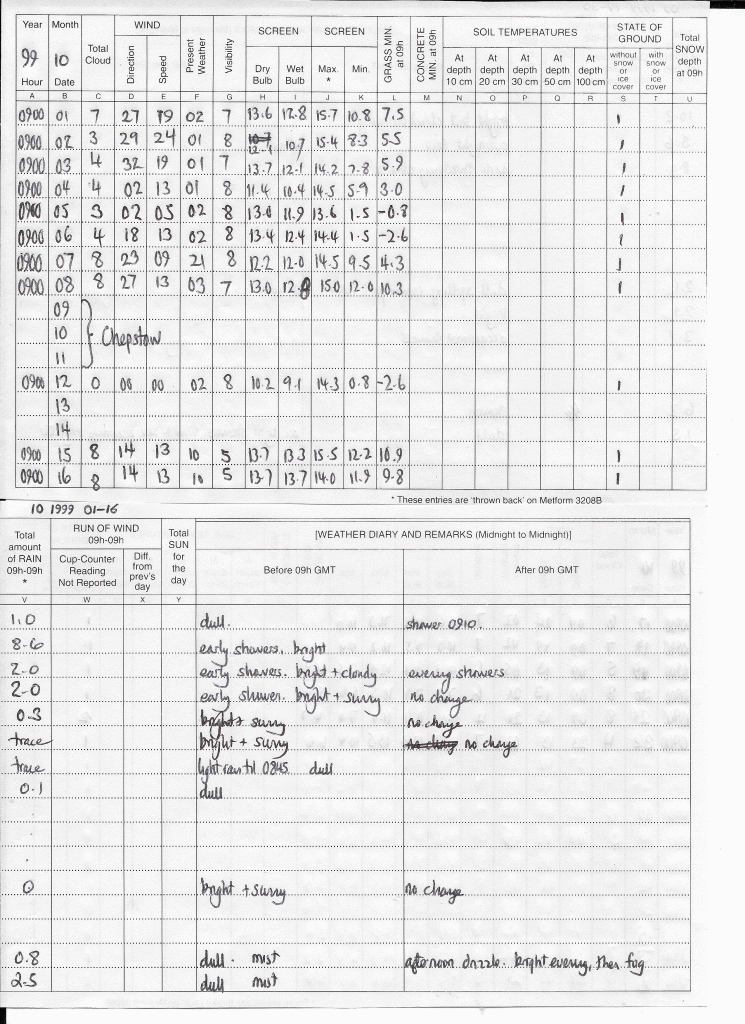 Year Month WIND SCREEN SCREEN SOIL TEMPERATURES STATE OF GROUND
99 10 Total Cloud Direction Speed Present Weather Visibility Dry Bulb Wet Bulb Max. * Min. GRASS MIN. at 09h CONCRETE MIN. at 09h At depth 10 cm At depth 20 cm At depth 30 cm At depth 50 cm At depth 100 cm without snow or ice cover with snow or ice cover Total SNOW depth at 09h
Hour Date
A B C D E F G H I J K L M N O P Q R S T U
0900 01 7 27 19 02 7 13.6 12.8 15.7 10.8 7.5 1
0900 02 3 29 24 01 8 12.1 10.7 15.4 8.3 5.5 1
0900 03 4 32 19 01 7 13.7 12.1 14.2 7.8 5.9 1
0900 04 4 02 13 01 8 11.4 10.4 14.5 5.9 3.0 1
0900 05 3 02 05 02 8 13.0 11.9 13.6 1.5 -0.8 1
0900 06 4 18 13 02 8 13.4 12.4 14.4 1.5 -2.6 1
0900 07 8 23 09 21 8 12.2 12.0 14.5 9.5 4.3 1
0900 08 8 27 13 03 7 13.0 12.8 15.0 12.0 10.3 1
09
10 Chepstow
11
0900 12 0 00 00 02 8 10.2 9.1 14.3 0.8 -2.6 1
13
14
0900 15 8 14 13 10 5 13.7 13.3 15.5 12.2 10.9 1
0900 16 8 14 13 10 5 13.7 13.7 14.0 11.9 9.8 1
* These entries are 'thrown back' on Metform 3208B
10 1999 01-16
Total amount of RAIN 09h-09h * RUN OF WIND 09h-09h Total SUN for the day [WEATHER DIARY AND REMARKS (Midnight to Midnight)]
Cup-Counter Reading Not Reported Diff. from prev's day Before 09h GMT After 09h GMT
V W X Y
1.0 dull. shower 0910.
8.6 early showers, bright
2.0 early showers. bright + cloudy evening showers
2.0 early shower. bright + sunny no change
0.3 bright + sunny no change
trace bright + sunny no change
trace light rain til 0845 dull
0.1 dull
0 bright + sunny no change
0.8 dull. mist afternoon drizzle. bright evening, then fog
2.5 dull mist